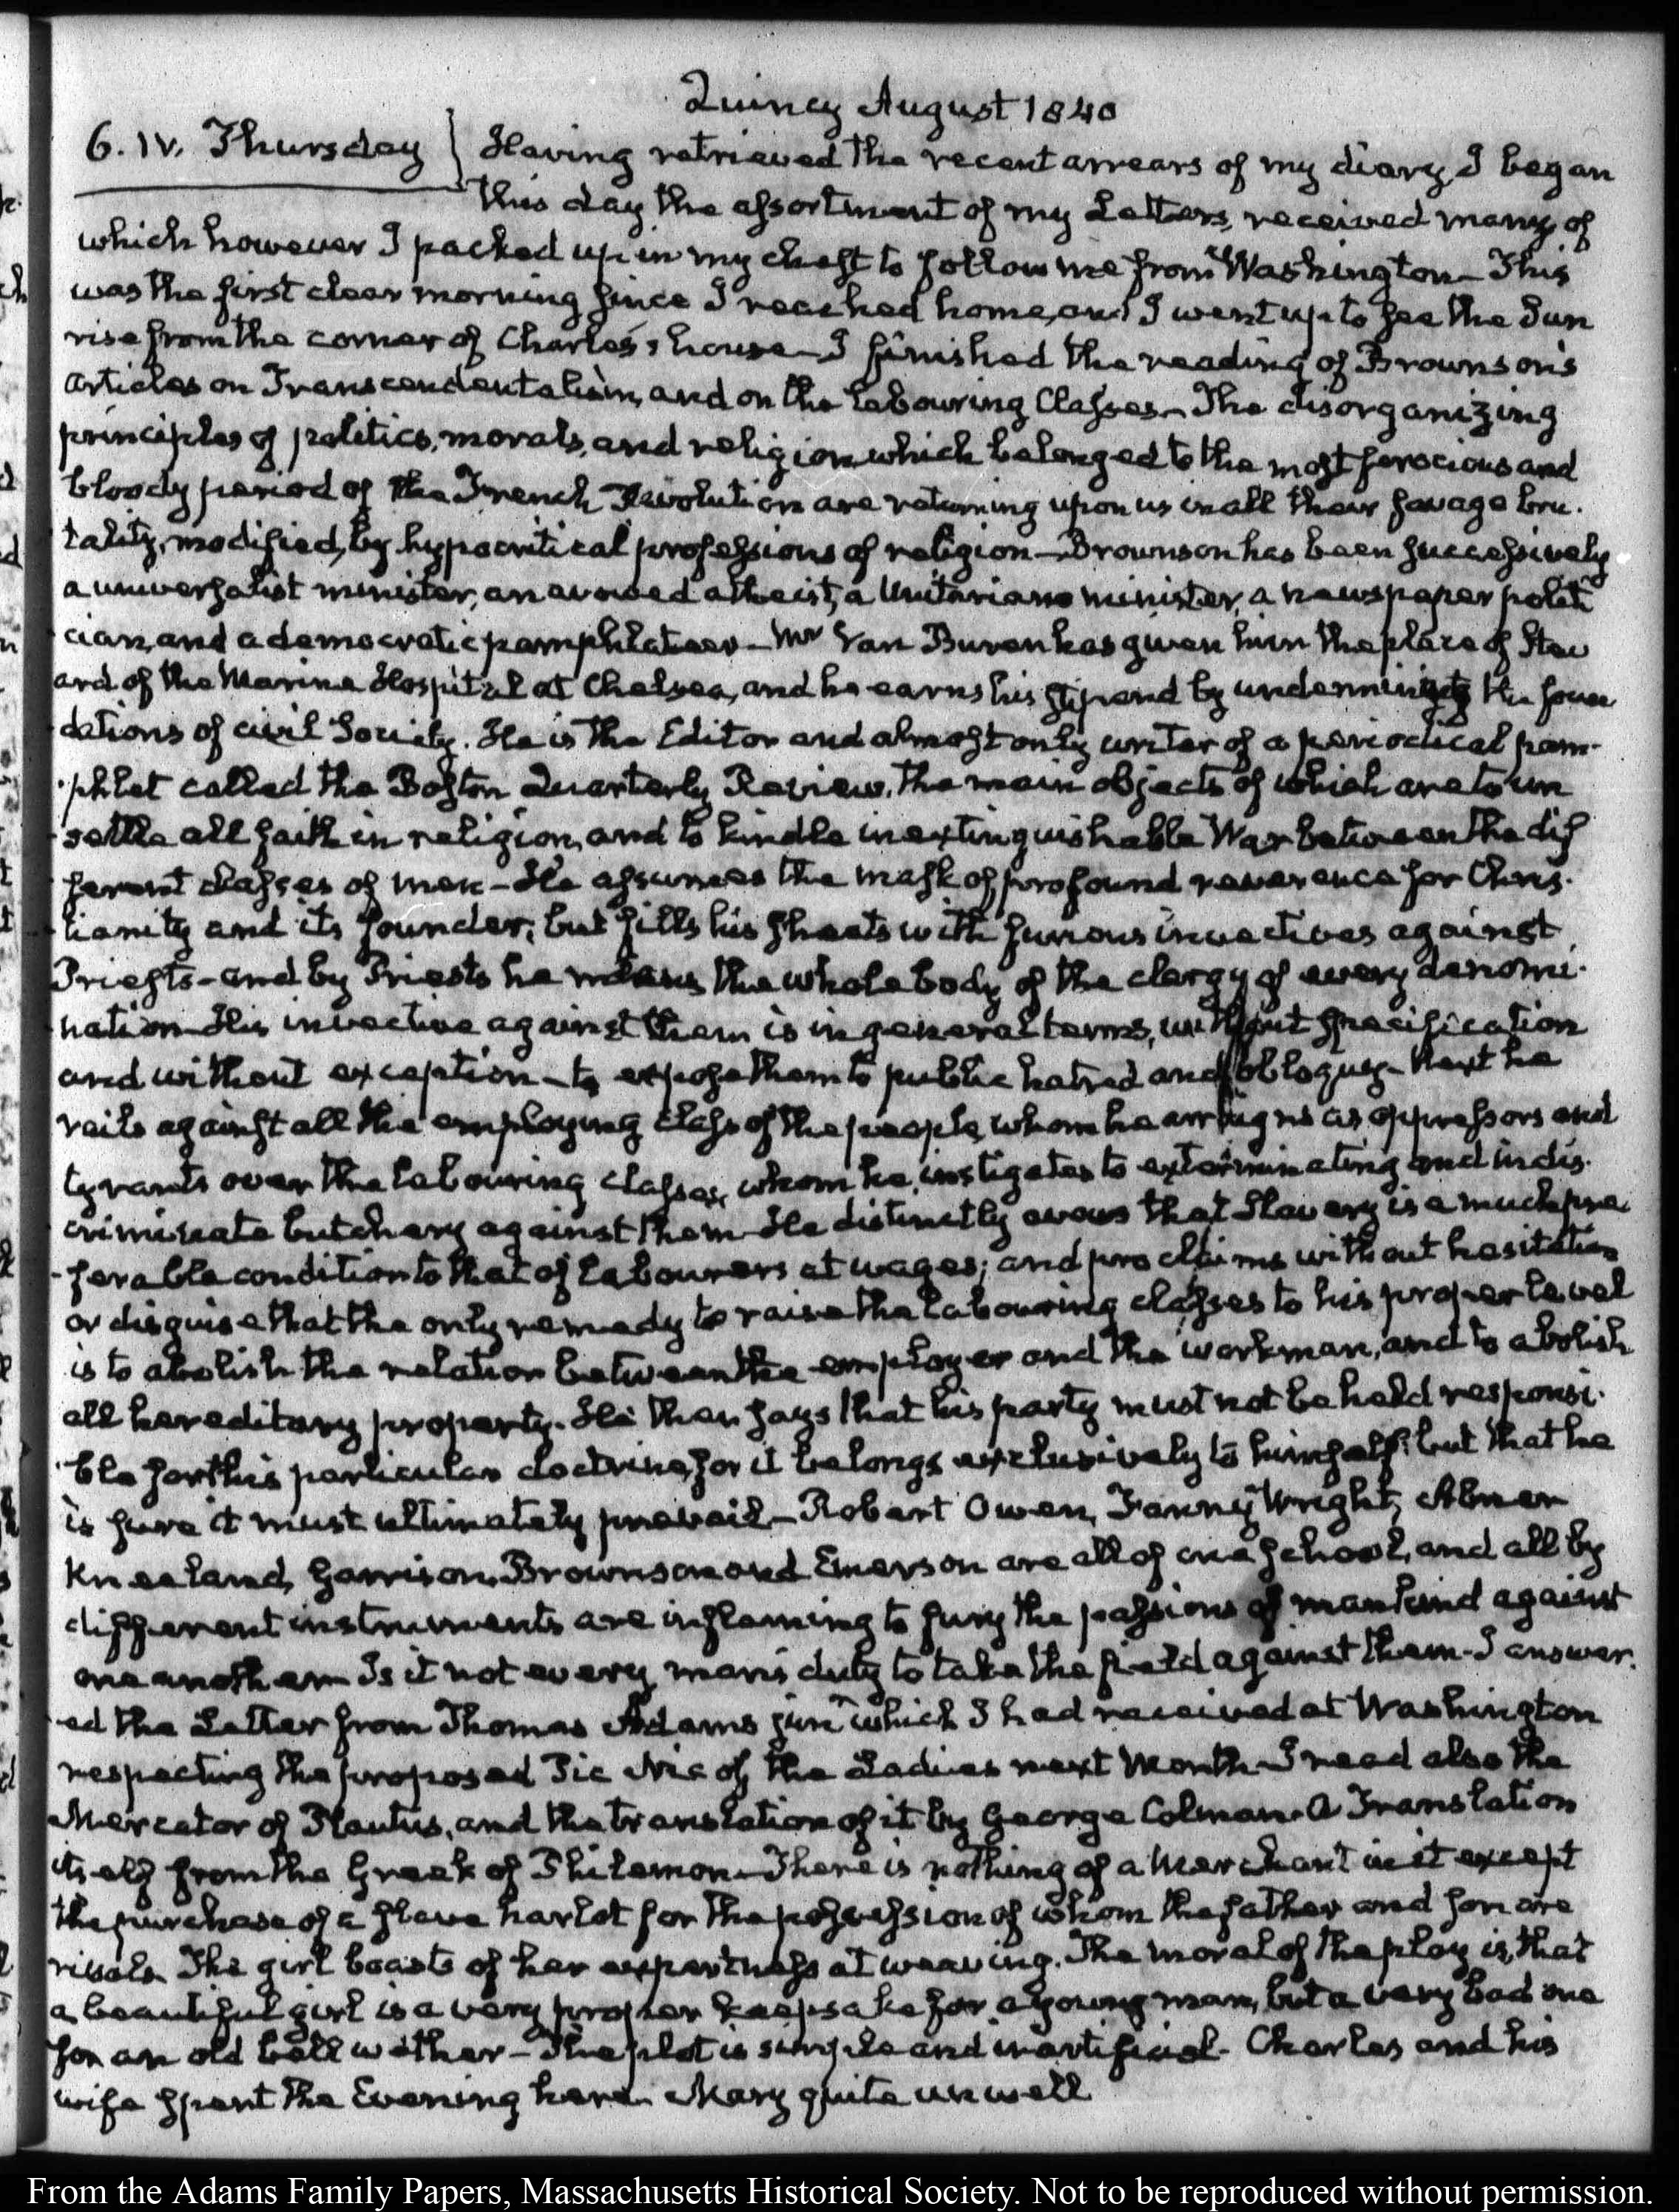 Quincy August 1840
6. IV. Thursday } Having retrieved the recent arrears of my diary, I began
this day the assortment of my Letters, received many of
which however I packed up in my chest to follow me from Washington – This
was the first clear morning since I reached home, and I went up to see the Sun
rise from the corner of Charles's house – I finished the reading of Brownson's
articles on Transcendentalism, and on the labouring Classes – The disorganizing
principles of politics, morals, and religion, which belonged to the most ferocious and
bloody period of the French Revolution are returning upon us in all their savage bru-
tality, modified, by hypocritical professions of religion – Brownson has been successively
a universalist minister, an avowed atheist, a Unitarian minister, a newspaper politi
cian, and a democratic pamphleteer – Mr Van Buren has given him the place of Stew
ard of the Marine Hospital at Chelsea, and he earns his stipend by undermining the foun
dations of civil Society. He is the Editor and almost only writer of a periodical pam-
-phlet called the Boston Quarterly Review, the main objects of which are to un
settle all faith in religion, and to kindle inextinguishable War between the dif
ferent classes of men – He assumes the mask of profound reverence for Chris-
tianity and its founder; but fills his sheets with furious invectives against
Priests – and by Priests he means the whole body of the clergy of every denomi-
nation – His invective against them is in general terms, without specification
and without exception – to expose them to public hatred and obloquy – Next he
rails against all the employing class of the people, whom he arraigns as oppressors and
tyrants over the labouring classes, whom he instigates to exterminating and indis-
criminate butchery against them – He distinctly avows that Slavery is a much pre
-ferable condition to that of labourers at wages; and proclaims without hesitation
or disguise that the only remedy to raise the labouring classes to his proper level
is to abolish the relation between the employer and the workman, and to abolish
all hereditary property. He then says that his party must not be held responsi-
-ble for this particular doctrine, for it belongs exclusively to himself; but that he
is sure it must ultimately prevail – Robert Owen, Fanny Wright, Abner
Kneeland, Garrison, Brownson and Emerson are all of one school, and all by
different instruments are inflaming to fury the passions of mankind against
one another – Is it not every man's duty to take the field against them – I answer-
-ed the Letter from Thomas Adams junr which I had received at Washington
respecting the proposed Pic Nic of the Ladies next Month – I read also the
Mercator of Plautus, and the translation of it by George Colman. A Translation
itself from the Greek of Philemon – There is nothing of a Merchant in it except
the purchase of a slave harlot for the possession of whom the father and son are
rivals. The girl boasts of her expertness at weaving. The moral of the play is, that
a beautiful girl is a very proper keepsake for a young man, but a very bad one
for an old bell wether – The plot is simple and inartificial – Charles and his
wife spent the Evening here. Mary quite unwell
From the Adams Family Papers, Massachusetts Historical Society. Not to be reproduced without permission.